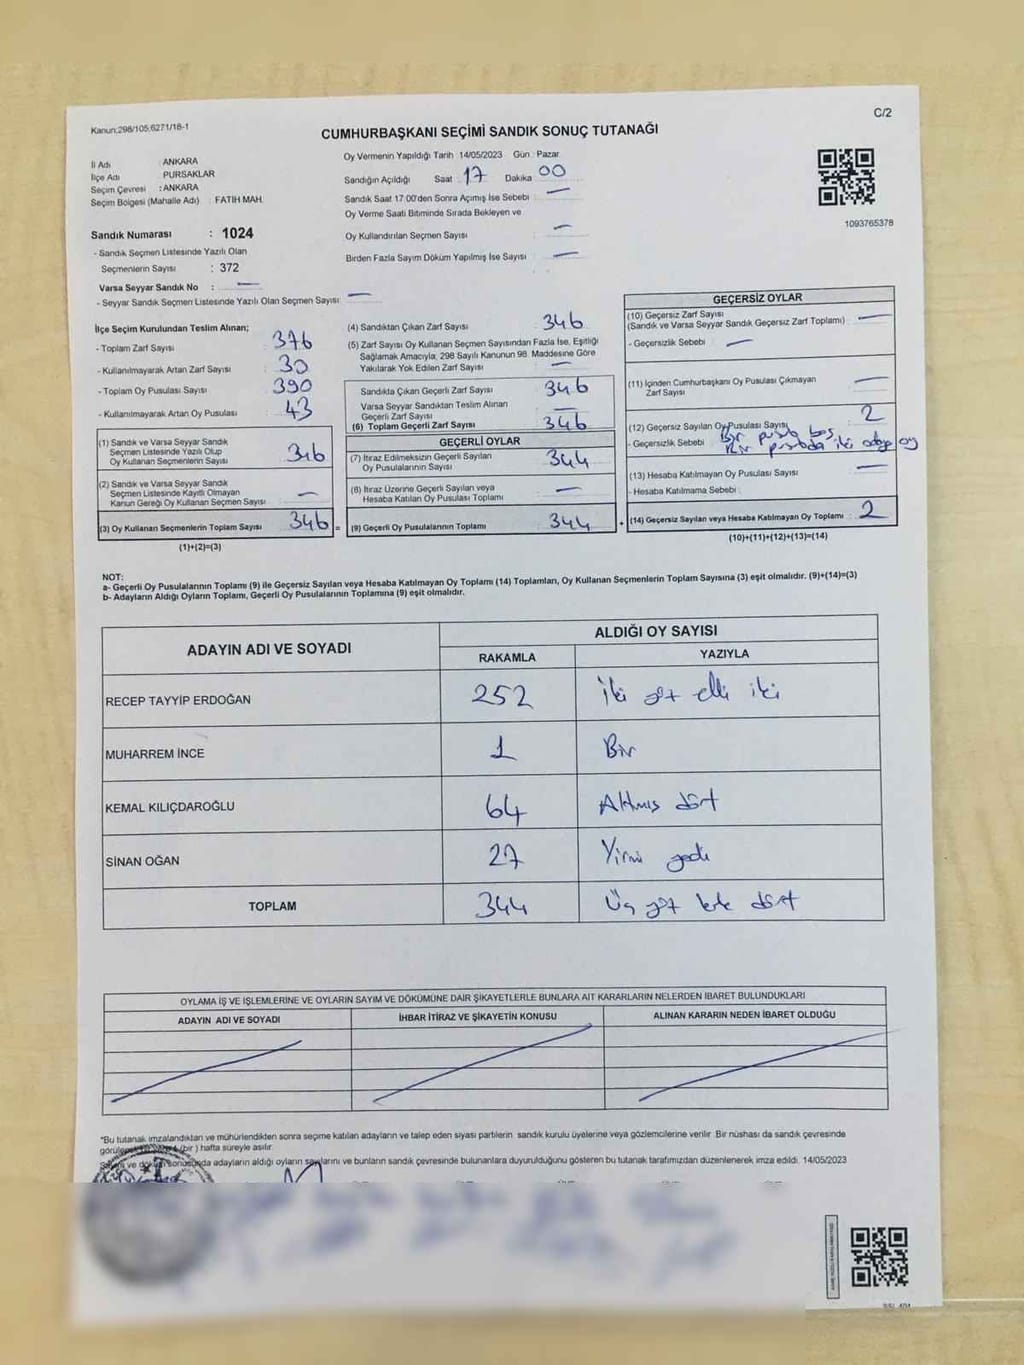 Kanun:298/105;6271/18-1
C/2
CUMHURBAŞKANI SEÇİMİ SANDIK SONUÇ TUTANAĞI
İl Adı : ANKARA
İlçe Adı : PURSAKLAR
Seçim Çevresi : ANKARA
Seçim Bölgesi (Mahalle Adı) : FATİH MAH.
Sandık Numarası : 1024
- Sandık Seçmen Listesinde Yazılı Olan
Seçmenlerin Sayısı : 372
Varsa Seyyar Sandık No : —
- Seyyar Sandık Seçmen Listesinde Yazılı Olan Seçmen Sayısı —
Oy Vermenin Yapıldığı Tarih 14/05/2023 Gün : Pazar
Sandığın Açıldığı Saat : 17 Dakika : 00
Sandık Saat 17.00'den Sonra Açılmış İse Sebebi : —
Oy Verme Saati Bitiminde Sırada Bekleyen ve
Oy Kullandırılan Seçmen Sayısı : —
Birden Fazla Sayım Döküm Yapılmış İse Sayısı : —
1093765378
İlçe Seçim Kurulundan Teslim Alınan;
- Toplam Zarf Sayısı : 376
- Kullanılmayarak Artan Zarf Sayısı : 30
- Toplam Oy Pusulası Sayısı : 390
- Kullanılmayarak Artan Oy Pusulası : 43
(1) Sandık ve Varsa Seyyar Sandık
Seçmen Listesinde Yazılı Olup
Oy Kullanan Seçmenlerin Sayısı : 346
(2) Sandık ve Varsa Seyyar Sandık
Seçmen Listesinde Kayıtlı Olmayan
Kanun Gereği Oy Kullanan Seçmen Sayısı : —
(3) Oy Kullanan Seçmenlerin Toplam Sayısı : 346 =
(1)+(2)=(3)
(4) Sandıktan Çıkan Zarf Sayısı : 346
(5) Zarf Sayısı Oy Kullanan Seçmen Sayısından Fazla İse, Eşitliği
Sağlamak Amacıyla, 298 Sayılı Kanunun 98. Maddesine Göre
Yakılarak Yok Edilen Zarf Sayısı : —
Sandıkta Çıkan Geçerli Zarf Sayısı : 346
Varsa Seyyar Sandıktan Teslim Alınan
Geçerli Zarf Sayısı : —
(6) Toplam Geçerli Zarf Sayısı : 346
GEÇERLİ OYLAR
(7) İtiraz Edilmeksizin Geçerli Sayılan
Oy Pusulalarının Sayısı : 344
(8) İtiraz Üzerine Geçerli Sayılan veya
Hesaba Katılan Oy Pusulası Toplamı : —
(9) Geçerli Oy Pusulalarının Toplamı : 344 +
GEÇERSİZ OYLAR
(10) Geçersiz Zarf Sayısı
(Sandık ve Varsa Seyyar Sandık Geçersiz Zarf Toplamı) : —
- Geçersizlik Sebebi : —
(11) İçinden Cumhurbaşkanı Oy Pusulası Çıkmayan
Zarf Sayısı : —
(12) Geçersiz Sayılan Oy Pusulası Sayısı : 2
- Geçersizlik Sebebi : Bir pusula boş
Bir pusulada iki adaya oy
(13) Hesaba Katılmayan Oy Pusulası Sayısı : —
- Hesaba Katılmama Sebebi :
(14) Geçersiz Sayılan veya Hesaba Katılmayan Oy Toplamı : 2
(10)+(11)+(12)+(13)=(14)
NOT:
a- Geçerli Oy Pusulalarının Toplamı (9) ile Geçersiz Sayılan veya Hesaba Katılmayan Oy Toplamı (14) Toplamları, Oy Kullanan Seçmenlerin Toplam Sayısına (3) eşit olmalıdır. (9)+(14)=(3)
b- Adayların Aldığı Oyların Toplamı, Geçerli Oy Pusulalarının Toplamına (9) eşit olmalıdır.
ADAYIN ADI VE SOYADI
ALDIĞI OY SAYISI
RAKAMLA YAZIYLA
RECEP TAYYİP ERDOĞAN 252 İki yüz elli iki
MUHARREM İNCE 1 Bir
KEMAL KILIÇDAROĞLU 64 Altmış dört
SİNAN OĞAN 27 Yirmi yedi
TOPLAM 344 Üç yüz kırk dört
OYLAMA İŞ VE İŞLEMLERİNE VE OYLARIN SAYIM VE DÖKÜMÜNE DAİR ŞİKAYETLERLE BUNLARA AİT KARARLARIN NELERDEN İBARET BULUNDUKLARI
ADAYIN ADI VE SOYADI İHBAR İTİRAZ VE ŞİKAYETİN KONUSU ALINAN KARARIN NEDEN İBARET OLDUĞU
*Bu tutanak imzalandıktan ve mühürlendikten sonra seçime katılan adayların ve talep eden siyasi partilerin sandık kurulu üyelerine veya gözlemcilerine verilir. Bir nüshası da sandık çevresinde
(bir) hafta süreyle asılır.
Sayım ve döküm sonucunda adayların aldığı oyların sayılarını ve bunların sandık çevresinde bulunanlara duyurulduğunu gösteren bu tutanak tarafımızdan düzenlenerek imza edildi. 14/05/2023